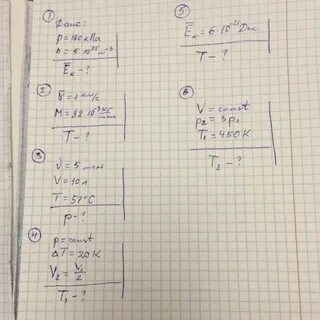 ①
Дано:
p = 180 кПа
n = 5·10²⁵ м⁻³
E̅ₖ - ?
②
v̅ = 1 км/с
M = 32·10⁻³
T - ?
③
ν = 5 моль
V = 10 л
T = 57°C
p - ?
④
p = const
ΔT = 20K
V₂ = V₁/2
T₁ - ?
⑤
E̅ₖ = 6·10⁻²¹ Дж
T - ?
⑥
V = const
p₂ = 3p₁
T₁ = 450 K
T₂ - ?